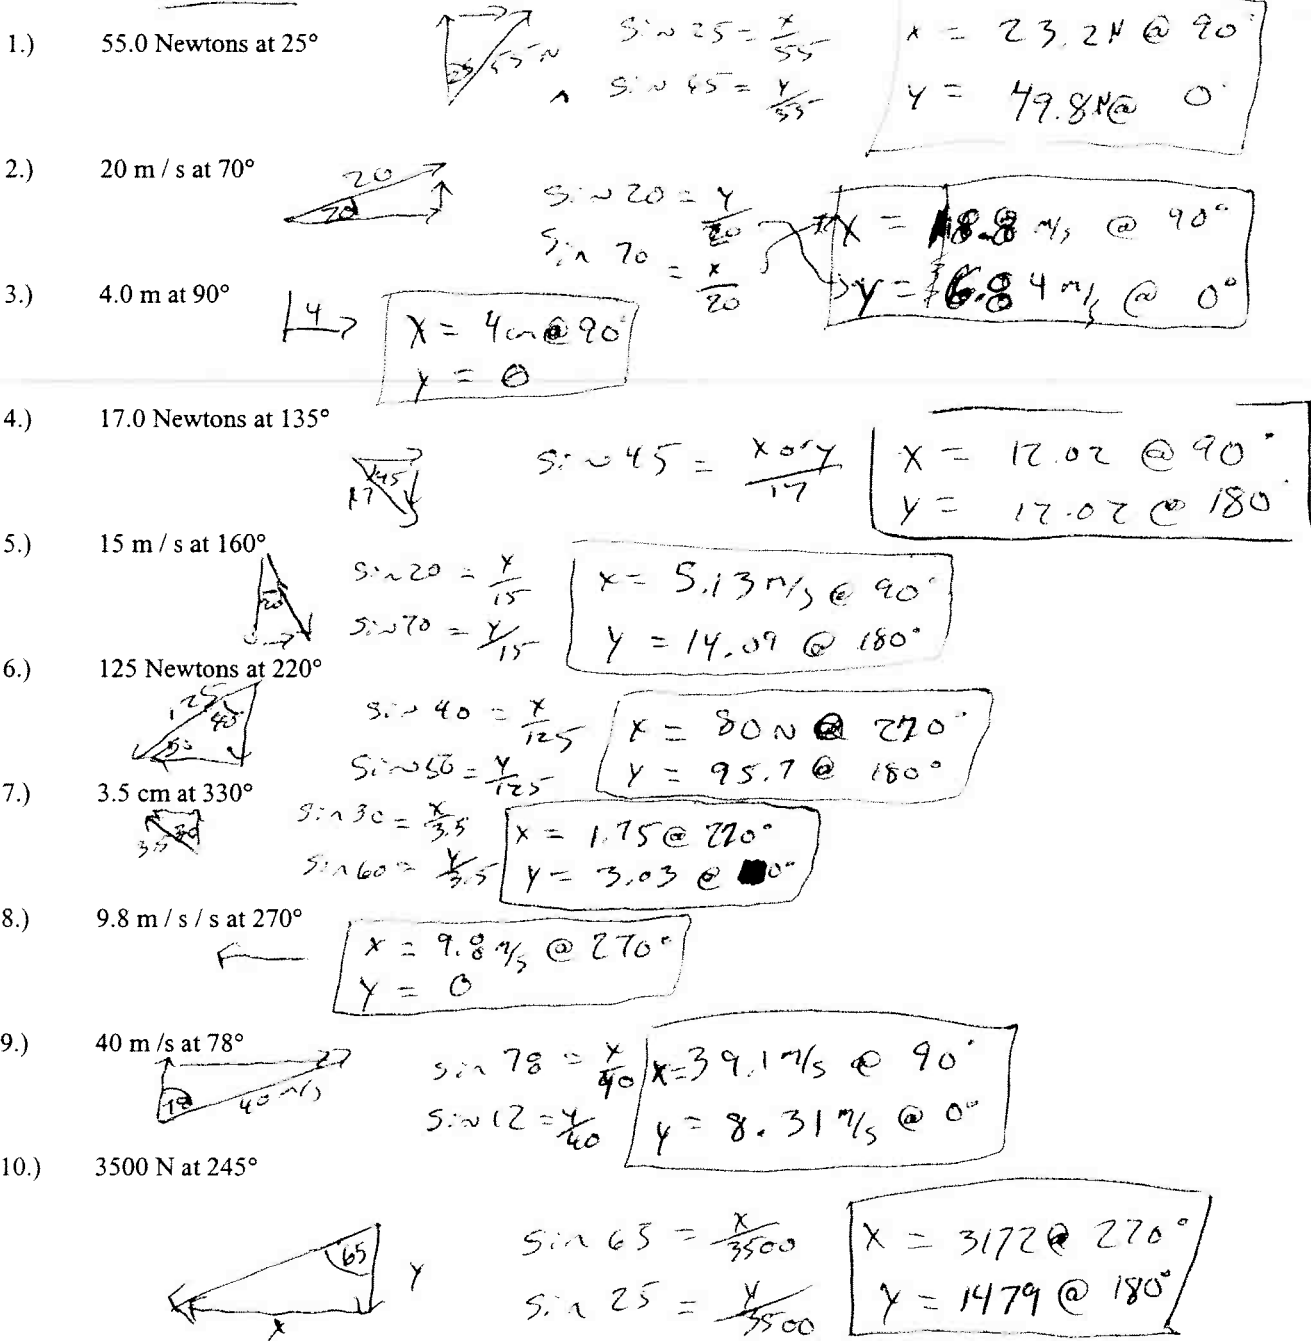 1.) 55.0 Newtons at 25°
25 55 N
sin 25 = x/55
sin 65 = y/55
x = 23.2N @ 90°
y = 49.8N @ 0°
2.) 20 m / s at 70°
20
20
sin 20 = y/20
sin 70 = x/20
x = 18.8 m/s @ 90°
y = 6.84 m/s @ 0°
3.) 4.0 m at 90°
4
x = 4m @ 90°
y = 0
4.) 17.0 Newtons at 135°
45
17
sin 45 = x or y/17
x = 12.02 @ 90°
y = 12.02 @ 180
5.) 15 m / s at 160°
20
sin 20 = x/15
sin 70 = y/15
x = 5.13 m/s @ 90°
y = 14.09 @ 180°
6.) 125 Newtons at 220°
125
40
50
sin 40 = x/125
sin 50 = y/125
x = 80 N @ 270°
y = 95.7 @ 180°
7.) 3.5 cm at 330°
3.5 30
sin 30 = x/3.5
sin 60 = y/3.5
x = 1.75 @ 270°
y = 3.03 @ 0°
8.) 9.8 m / s / s at 270°
x = 9.8 m/s @ 270°
y = 0
9.) 40 m /s at 78°
78 40 m/s
sin 78 = x/40
sin 12 = y/40
x = 39.1 m/s @ 90°
y = 8.31 m/s @ 0°
10.) 3500 N at 245°
65
y
x
sin 65 = x/3500
sin 25 = y/3500
x = 3172 @ 270°
y = 1479 @ 180°